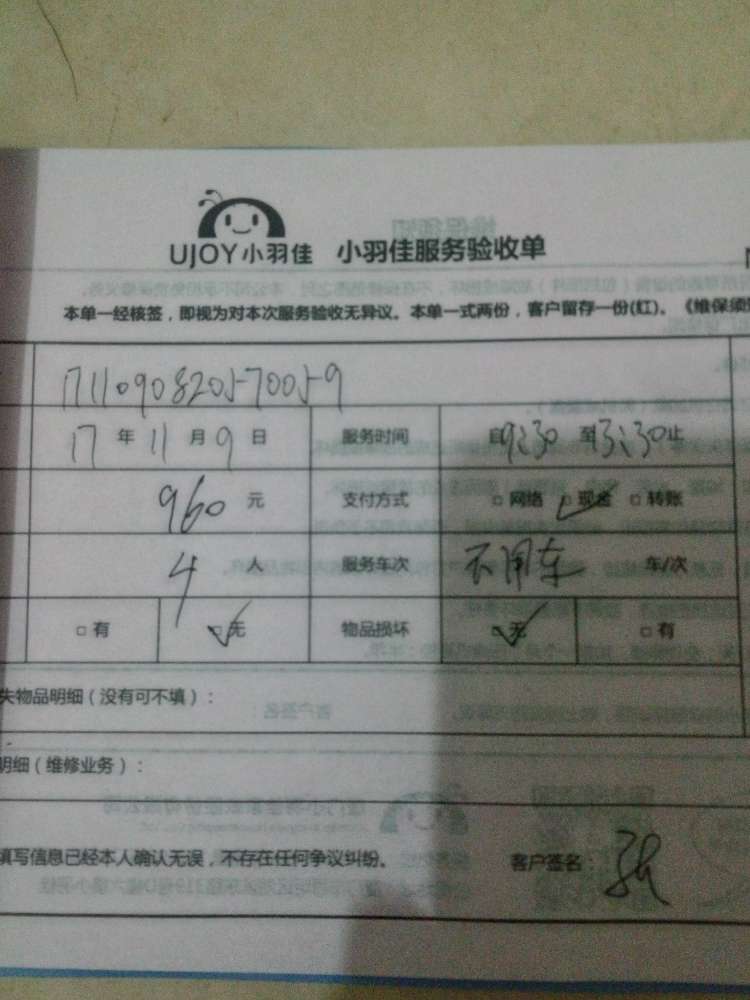 UJOY小羽佳 小羽佳服务验收单
本单一经核签，即视为对本次服务验收无异议。本单一式两份，客户留存一份(红)。《维保须
1711090820570059
17 年 11 月 9 日 服务时间 自9:30 至3:30止
960 元 支付方式 □ 网络 □ 现金 □ 转账
4 人 服务车次 不用车 车/次
□ 有 □ 无 物品损坏 □ 无 □ 有
失物品明细（没有可不填）：
明细（维修业务）：
填写信息已经本人确认无误，不存在任何争议纠纷。 客户签名：